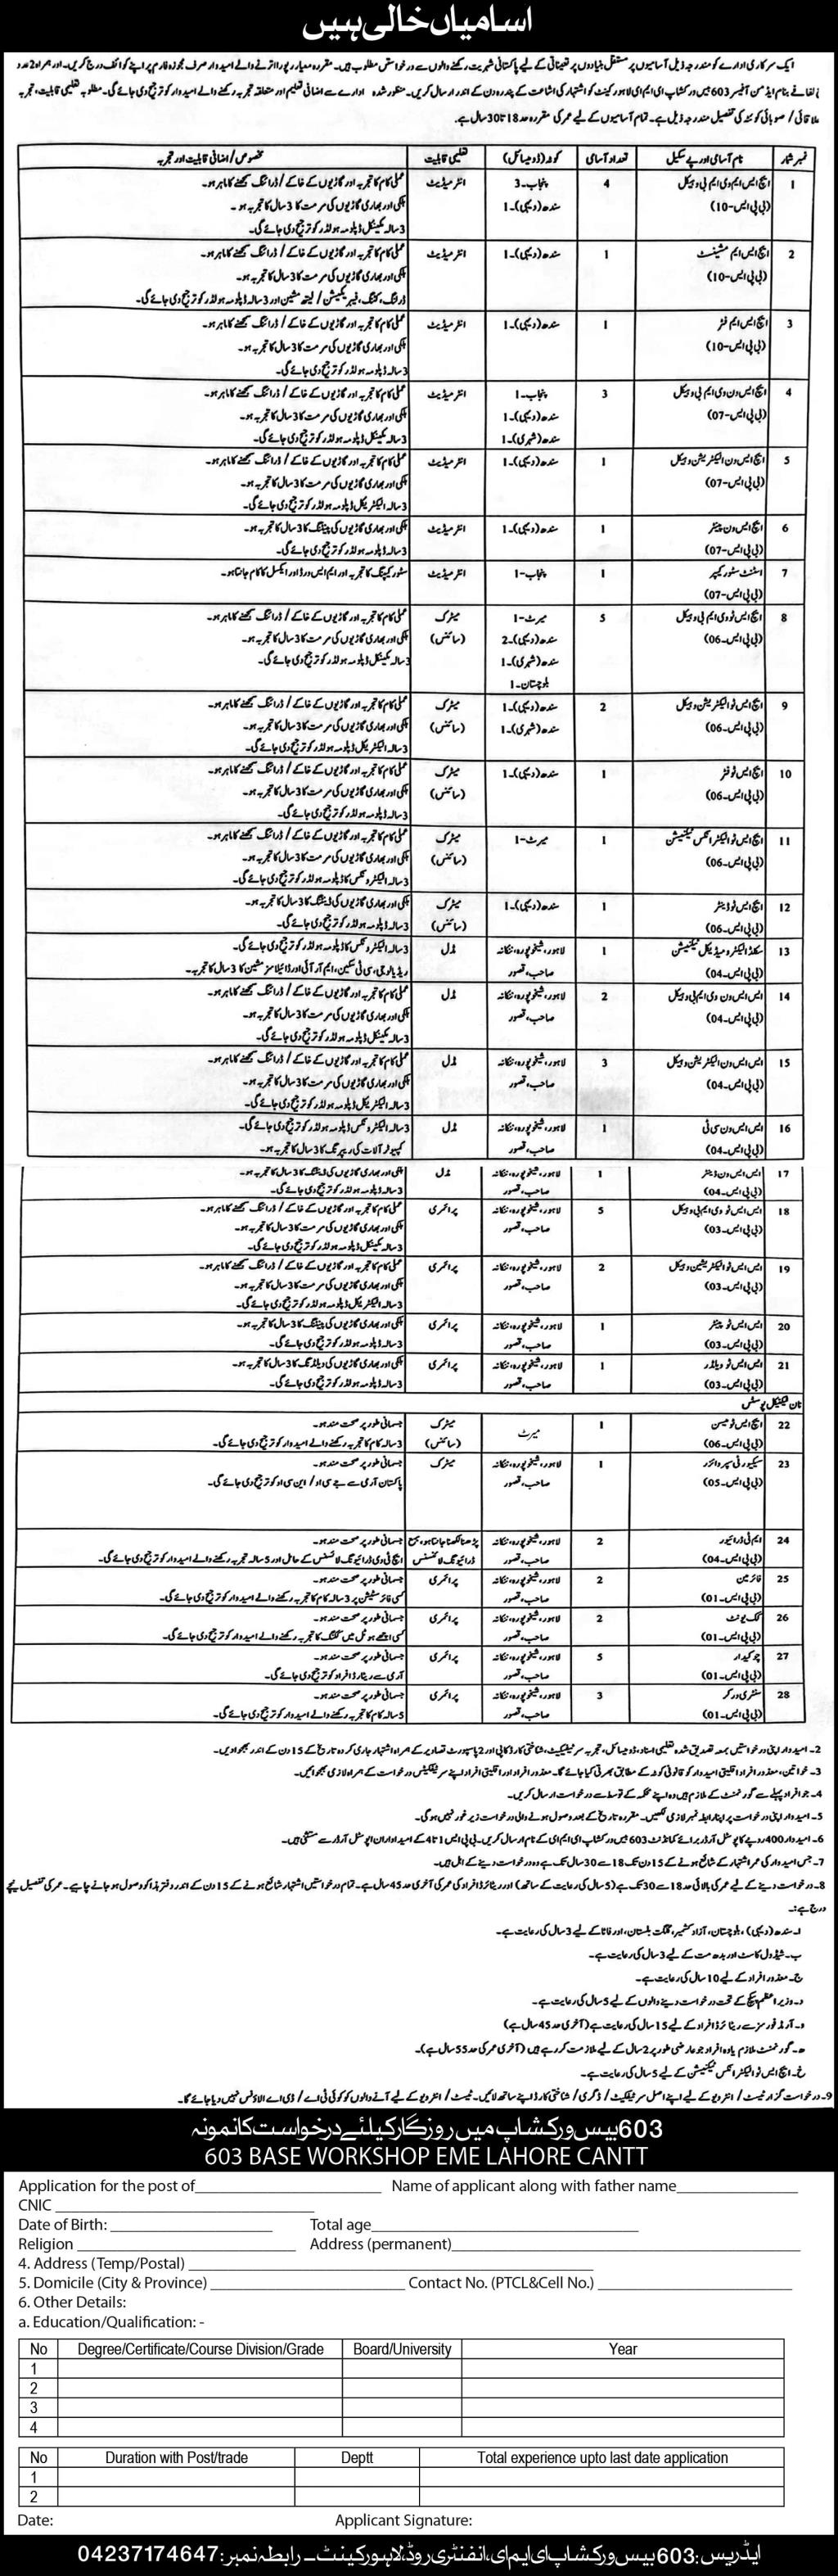 اسامیاں خالی ہیں
ایک سرکاری ادارے کو مندرجہ ذیل آسامیوں پر مستقل بنیادوں پر تعیناتی کے لیے پاکستانی شہریت رکھنے والوں سے درخواستیں مطلوب ہیں۔ مقررہ معیار پر پورا اترنے والے امیدوار صرف مجوزہ فارم پر اپنے کوائف درج کریں۔ اور ہمراہ 2 عدد
لفافے بنام ایڈمن آفیسر 603 بیس ورکشاپ ای ایم ای لاہور کینٹ کو اشتہار کی اشاعت کے پندرہ دن کے اندر ارسال کریں۔ منظور شدہ ادارے سے اضافی تعلیم اور متعلقہ تجربہ رکھنے والے امیدوار کو ترجیح دی جائے گی۔ مطلوبہ تعلیمی قابلیت، تجربہ
علاقائی / صوبائی کوٹہ کی تفصیل مندرجہ ذیل ہے۔ تمام آسامیوں کے لیے عمر کی مقررہ حد 18 تا 30 سال ہے۔
نمبر شمار نام آسامی اور پے سکیل تعداد آسامی کوٹہ (ڈومیسائل) تعلیمی قابلیت مخصوص / اضافی قابلیت اور تجربہ
1 ایچ ایس ایم وی ایم بی وہیکل 4 پنجاب-3 انٹرمیڈیٹ عملی کام کا تجربہ اور گاڑیوں کے خاکے / ڈرائنگ سمجھنے کا ماہر ہو۔
(بی پی ایس-10) سندھ (دیہی)-1 ہلکی اور بھاری گاڑیوں کی مرمت کا 3 سال کا تجربہ ہو۔
3 سالہ مکینیکل ڈپلومہ ہولڈر کو ترجیح دی جائے گی۔
2 ایچ ایس ایم مشینسٹ 1 سندھ (دیہی)-1 انٹرمیڈیٹ عملی کام کا تجربہ اور گاڑیوں کے خاکے / ڈرائنگ سمجھنے کا ماہر ہو۔
(بی پی ایس-10) ہلکی اور بھاری گاڑیوں کی مرمت کا 3 سال کا تجربہ ہو۔
ڈرلنگ، کٹنگ، فیبریکیشن / لیتھ مشین اور 3 سالہ ڈپلومہ ہولڈر کو ترجیح دی جائے گی۔
3 ایچ ایس ایم فٹر 1 سندھ (دیہی)-1 انٹرمیڈیٹ عملی کام کا تجربہ اور گاڑیوں کے خاکے / ڈرائنگ سمجھنے کا ماہر ہو۔
(بی پی ایس-10) ہلکی اور بھاری گاڑیوں کی مرمت کا 3 سال کا تجربہ ہو۔
3 سالہ ڈپلومہ ہولڈر کو ترجیح دی جائے گی۔
4 ایچ ایس ون وی ایم بی وہیکل 3 پنجاب-1 انٹرمیڈیٹ عملی کام کا تجربہ اور گاڑیوں کے خاکے / ڈرائنگ سمجھنے کا ماہر ہو۔
(بی پی ایس-07) سندھ (دیہی)-1 ہلکی اور بھاری گاڑیوں کی مرمت کا 3 سال کا تجربہ ہو۔
سندھ (شہری)-1 3 سالہ مکینیکل ڈپلومہ ہولڈر کو ترجیح دی جائے گی۔
5 ایچ ایس ون الیکٹریشن وہیکل 1 سندھ (دیہی)-1 انٹرمیڈیٹ عملی کام کا تجربہ اور گاڑیوں کے خاکے / ڈرائنگ سمجھنے کا ماہر ہو۔
(بی پی ایس-07) ہلکی اور بھاری گاڑیوں کی مرمت کا 3 سال کا تجربہ ہو۔
3 سالہ الیکٹریکل ڈپلومہ ہولڈر کو ترجیح دی جائے گی۔
6 ایچ ایس ون پینٹر 1 سندھ (دیہی)-1 انٹرمیڈیٹ ہلکی اور بھاری گاڑیوں کی پینٹنگ کا 3 سال کا تجربہ ہو۔
(بی پی ایس-07) 3 سالہ ڈپلومہ ہولڈر کو ترجیح دی جائے گی۔
7 اسسٹنٹ سٹور کیپر 1 پنجاب-1 انٹرمیڈیٹ سٹور کیپنگ کا تجربہ اور ایم ایس ورڈ اور ایکسل کا کام جانتا ہو۔
(بی پی ایس-07)
8 ایچ ایس ٹو وی ایم بی وہیکل 5 میرٹ-1 میٹرک عملی کام کا تجربہ اور گاڑیوں کے خاکے / ڈرائنگ سمجھنے کا ماہر ہو۔
(بی پی ایس-06) سندھ (دیہی)-2 (سائنس) ہلکی اور بھاری گاڑیوں کی مرمت کا 3 سال کا تجربہ ہو۔
سندھ (شہری)-1 3 سالہ مکینیکل ڈپلومہ ہولڈر کو ترجیح دی جائے گی۔
بلوچستان-1
9 ایچ ایس ٹو الیکٹریشن وہیکل 2 سندھ (دیہی)-1 میٹرک عملی کام کا تجربہ اور گاڑیوں کے خاکے / ڈرائنگ سمجھنے کا ماہر ہو۔
(بی پی ایس-06) سندھ (شہری)-1 (سائنس) ہلکی اور بھاری گاڑیوں کی مرمت کا 3 سال کا تجربہ ہو۔
3 سالہ الیکٹریکل ڈپلومہ ہولڈر کو ترجیح دی جائے گی۔
10 ایچ ایس ٹو فٹر 1 سندھ (دیہی)-1 میٹرک عملی کام کا تجربہ اور گاڑیوں کے خاکے / ڈرائنگ سمجھنے کا ماہر ہو۔
(بی پی ایس-06) (سائنس) ہلکی اور بھاری گاڑیوں کی مرمت کا 3 سال کا تجربہ ہو۔
3 سالہ ڈپلومہ ہولڈر کو ترجیح دی جائے گی۔
11 ایچ ایس ٹو الیکٹرانکس ٹیکنیشن 1 میرٹ-1 میٹرک عملی کام کا تجربہ اور گاڑیوں کے خاکے / ڈرائنگ سمجھنے کا ماہر ہو۔
(بی پی ایس-06) (سائنس) ہلکی اور بھاری گاڑیوں کی مرمت کا 3 سال کا تجربہ ہو۔
3 سالہ الیکٹرونکس ڈپلومہ ہولڈر کو ترجیح دی جائے گی۔
12 ایچ ایس ٹو ڈینٹر 1 سندھ (دیہی)-1 میٹرک ہلکی اور بھاری گاڑیوں کی ڈینٹنگ کا 3 سال کا تجربہ ہو۔
(بی پی ایس-06) (سائنس) 3 سالہ ڈپلومہ ہولڈر کو ترجیح دی جائے گی۔
13 سکلڈ الیکٹرو میڈیکل ٹیکنیشن 1 لاہور، شیخوپورہ، ننکانہ مڈل 3 سالہ الیکٹرونکس کا ڈپلومہ ہولڈر کو ترجیح دی جائے گی۔
(بی پی ایس-04) صاحب، قصور ریڈیالوجی، سی ٹی سکین، ایم آر آئی اور ڈائیلائزر مشین کا 3 سال کا تجربہ۔
14 ایس ایس ون وی ایم بی وہیکل 2 لاہور، شیخوپورہ، ننکانہ مڈل عملی کام کا تجربہ اور گاڑیوں کے خاکے / ڈرائنگ سمجھنے کا ماہر ہو۔
(بی پی ایس-04) صاحب، قصور ہلکی اور بھاری گاڑیوں کی مرمت کا 3 سال کا تجربہ ہو۔
3 سالہ مکینیکل ڈپلومہ ہولڈر کو ترجیح دی جائے گی۔
15 ایس ایس ون الیکٹریشن وہیکل 3 لاہور، شیخوپورہ، ننکانہ مڈل عملی کام کا تجربہ اور گاڑیوں کے خاکے / ڈرائنگ سمجھنے کا ماہر ہو۔
(بی پی ایس-04) صاحب، قصور ہلکی اور بھاری گاڑیوں کی مرمت کا 3 سال کا تجربہ ہو۔
3 سالہ الیکٹریکل ڈپلومہ ہولڈر کو ترجیح دی جائے گی۔
16 ایس ایس ون سی ٹی 1 لاہور، شیخوپورہ، ننکانہ مڈل 3 سالہ الیکٹرونکس ڈپلومہ ہولڈر کو ترجیح دی جائے گی۔
(بی پی ایس-04) صاحب، قصور کمپیوٹر آلات کی ریپرنگ کا 3 سال کا تجربہ ہو۔
17 ایس ایس ون ڈینٹر 1 لاہور، شیخوپورہ، ننکانہ مڈل ہلکی اور بھاری گاڑیوں کی ڈینٹنگ کا 3 سال کا تجربہ ہو۔
(بی پی ایس-04) صاحب، قصور 3 سالہ ڈپلومہ ہولڈر کو ترجیح دی جائے گی۔
18 ایس ایس ٹو وی ایم بی وہیکل 5 لاہور، شیخوپورہ، ننکانہ پرائمری عملی کام کا تجربہ اور گاڑیوں کے خاکے / ڈرائنگ سمجھنے کا ماہر ہو۔
(بی پی ایس-03) صاحب، قصور ہلکی اور بھاری گاڑیوں کی مرمت کا 3 سال کا تجربہ ہو۔
3 سالہ مکینیکل ڈپلومہ ہولڈر کو ترجیح دی جائے گی۔
19 ایس ایس ٹو الیکٹریشین وہیکل 2 لاہور، شیخوپورہ، ننکانہ پرائمری عملی کام کا تجربہ اور گاڑیوں کے خاکے / ڈرائنگ سمجھنے کا ماہر ہو۔
(بی پی ایس-03) صاحب، قصور ہلکی اور بھاری گاڑیوں کی مرمت کا 3 سال کا تجربہ ہو۔
3 سالہ الیکٹریکل ڈپلومہ ہولڈر کو ترجیح دی جائے گی۔
20 ایس ایس ٹو پینٹر 1 لاہور، شیخوپورہ، ننکانہ پرائمری ہلکی اور بھاری گاڑیوں کی پینٹنگ کا 3 سال کا تجربہ ہو۔
(بی پی ایس-03) صاحب، قصور 3 سالہ ڈپلومہ ہولڈر کو ترجیح دی جائے گی۔
21 ایس ایس ٹو ویلڈر 1 لاہور، شیخوپورہ، ننکانہ پرائمری ہلکی اور بھاری گاڑیوں کی ویلڈنگ کا 3 سال کا تجربہ ہو۔
(بی پی ایس-03) صاحب، قصور 3 سالہ ڈپلومہ ہولڈر کو ترجیح دی جائے گی۔
نان ٹیکنیکل پوسٹس
22 ایچ ایس ٹو میسن 1 میرٹ میٹرک جسمانی طور پر صحت مند ہو۔
(بی پی ایس-06) (سائنس) 3 سالہ کام کا تجربہ رکھنے والے امیدوار کو ترجیح دی جائے گی۔
23 سیکیورٹی سپروائزر 1 لاہور، شیخوپورہ، ننکانہ میٹرک جسمانی طور پر صحت مند ہو۔
(بی پی ایس-05) صاحب، قصور پاکستان آرمی سے جے سی او / این سی او کو ترجیح دی جائے گی۔
24 ایم ٹی ڈرائیور 2 لاہور، شیخوپورہ، ننکانہ پڑھنا لکھنا جانتا ہو، بمع جسمانی طور پر صحت مند ہو۔
(بی پی ایس-04) صاحب، قصور ڈرائیونگ لائسنس ایچ ٹی وی ڈرائیونگ لائسنس کے حامل اور 5 سالہ تجربہ رکھنے والے امیدوار کو ترجیح دی جائے گی۔
25 فائرمین 2 لاہور، شیخوپورہ، ننکانہ پرائمری جسمانی طور پر صحت مند ہو۔
(بی پی ایس-01) صاحب، قصور کسی فائر سٹیشن پر 3 سالہ کام کا تجربہ رکھنے والے امیدوار کو ترجیح دی جائے گی۔
26 کک یونٹ 2 لاہور، شیخوپورہ، ننکانہ پرائمری جسمانی طور پر صحت مند ہو۔
(بی پی ایس-01) صاحب، قصور کسی اچھے ہوٹل میں ککنگ کا تجربہ رکھنے والے امیدوار کو ترجیح دی جائے گی۔
27 چوکیدار 5 لاہور، شیخوپورہ، ننکانہ پرائمری جسمانی طور پر صحت مند ہو۔
(بی پی ایس-01) صاحب، قصور آرمی سے ریٹائرڈ افراد کو ترجیح دی جائے گی۔
28 سنٹری ورکر 3 لاہور، شیخوپورہ، ننکانہ پرائمری جسمانی طور پر صحت مند ہو۔
(بی پی ایس-01) صاحب، قصور 5 سالہ کام کا تجربہ رکھنے والے امیدوار کو ترجیح دی جائے گی۔
2- امیدوار اپنی درخواستیں بمعہ تصدیق شدہ تعلیمی اسناد، ڈومیسائل، تجربہ سرٹیفکیٹ، شناختی کارڈ کاپی اور 2 پاسپورٹ تصاویر کے ہمراہ اشتہار جاری کردہ تاریخ کے 15 دن کے اندر بھجوا دیں۔
3- خواتین، معذور افراد اقلیتی امیدوار کو قانونی کوٹہ کے مطابق بھرتی کیا جائے گا۔ معذور افراد اور اقلیتی افراد اپنے سرٹیفکیٹس درخواست کے ہمراہ لازمی بھجوائیں۔
4- جو افراد پہلے سے گورنمنٹ کے ملازم ہیں وہ اپنے محکمہ کے توسط سے درخواست ارسال کریں۔
5- امیدوار اپنی درخواست پر اپنا رابطہ نمبر لازمی لکھیں۔ مقررہ تاریخ کے بعد وصول ہونے والی درخواست زیر غور نہیں ہوگی۔
6- امیدوار 400 روپے کا پوسٹل آرڈر برائے کمانڈنٹ 603 بیس ورکشاپ ای ایم ای کے نام ارسال کریں۔ بی پی ایس 1 تا 4 کے امیدواران پوسٹل آرڈر سے مستثنیٰ ہیں۔
7- جس امیدوار کی عمر اشتہار کے شائع ہونے کے 15 دن تک 18 سے 30 سال تک ہے وہ درخواست دینے کے اہل ہیں۔
8- درخواست دینے کے لیے عمر کی بالائی حد 18 سے 30 تک ہے (5 سال کی رعایت کے ساتھ) اور ریٹائرڈ افراد کی عمر کی آخری حد 45 سال ہے۔ تمام درخواستیں اشتہار شائع ہونے کے 15 دن کے اندر دفتر ہذا کو وصول ہو جانے چاہیے۔ عمر کی تفصیل نیچے
درج ہے:۔
ا۔ سندھ (دیہی)، بلوچستان، آزاد کشمیر، گلگت بلتستان، اور فاٹا کے لیے 3 سال کی رعایت ہے۔
ب۔ شیڈول کاسٹ اور بدھ مت کے لیے 3 سال کی رعایت ہے۔
ج۔ معذور افراد کے لیے 10 سال کی رعایت ہے۔
د۔ وزیر اعظم پیکج کے تحت درخواست دینے والوں کے لیے 5 سال کی رعایت ہے۔
و۔ آرمڈ فورسز سے ریٹائرڈ افراد کے لیے 15 سال کی رعایت ہے (آخری حد 45 سال ہے)
ہ۔ گورنمنٹ ملازم یا وہ افراد جو عارضی طور پر 2 سال کے لیے ملازمت کر رہے ہیں (آخری عمر کی حد 55 سال ہے)۔
خ۔ ایچ ایس ٹو الیکٹرانکس ٹیکنیشن کے لیے 5 سال کی رعایت ہے۔
9- درخواست گزار ٹیسٹ / انٹرویو کے لیے اپنے اصل سرٹیفکیٹ / ڈگری / شناختی کارڈ اپنے ساتھ لائیں۔ ٹیسٹ / انٹرویو کے لیے آنے والوں کو کوئی ٹی اے / ڈی اے الاؤنس نہیں دیا جائے گا۔
603 بیس ورکشاپ میں روزگار کیلئے درخواست کا نمونہ
603 BASE WORKSHOP EME LAHORE CANTT
Application for the post of Name of applicant along with father name
CNIC
Date of Birth: Total age
Religion Address (permanent)
4. Address (Temp/Postal)
5. Domicile (City & Province) Contact No. (PTCL&Cell No.)
6. Other Details:
a. Education/Qualification: -
No Degree/Certificate/Course Division/Grade Board/University Year
1
2
3
4
No Duration with Post/trade Deptt Total experience upto last date application
1
2
Date: Applicant Signature:
ایڈریس: 603 بیس ورکشاپ ای ایم ای، انفنٹری روڈ، لاہور کینٹ ۔ رابطہ نمبر: 04237174647